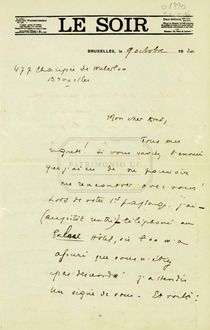 LE SOIR
BRUXELLES, le 9 octobre 19
477 Chaussée de Waterloo
Bruxelles
Mon cher ami,
Tous mes
regrets! Si vous saviez l'ennui
que j'ai eu de ne pouvoir
me rencontrer avec vous!
Lors de votre 1er passage, j'ai
(aussitôt rentré) téléphoné au
Palace Hôtel, où l'on m'a
affirmé que vous n'étiez
pas descendu! J'attendis
un signe de vous. Et voilà!
PATRIMONIO UC